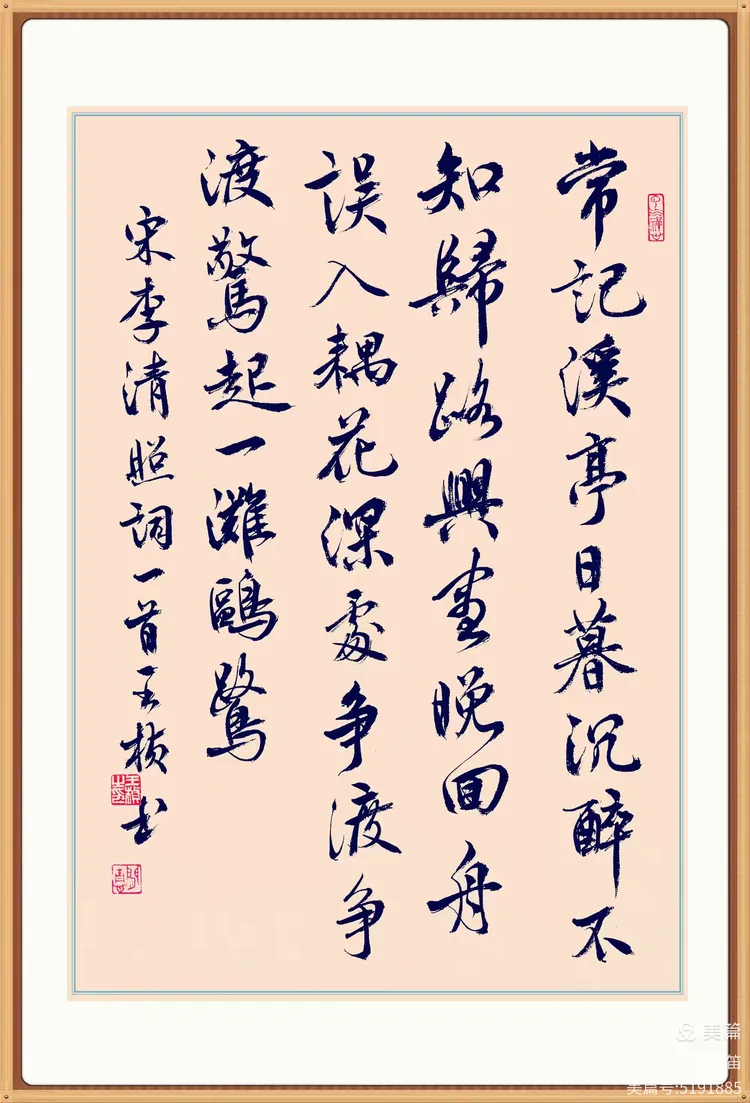 常記溪亭日暮沉醉不
知歸路興盡晚回舟
誤入耦花深處争渡争
渡驚起一灘鷗鷺
宋李清照詞一首王楨书
美篇
笛
美篇号:5191885